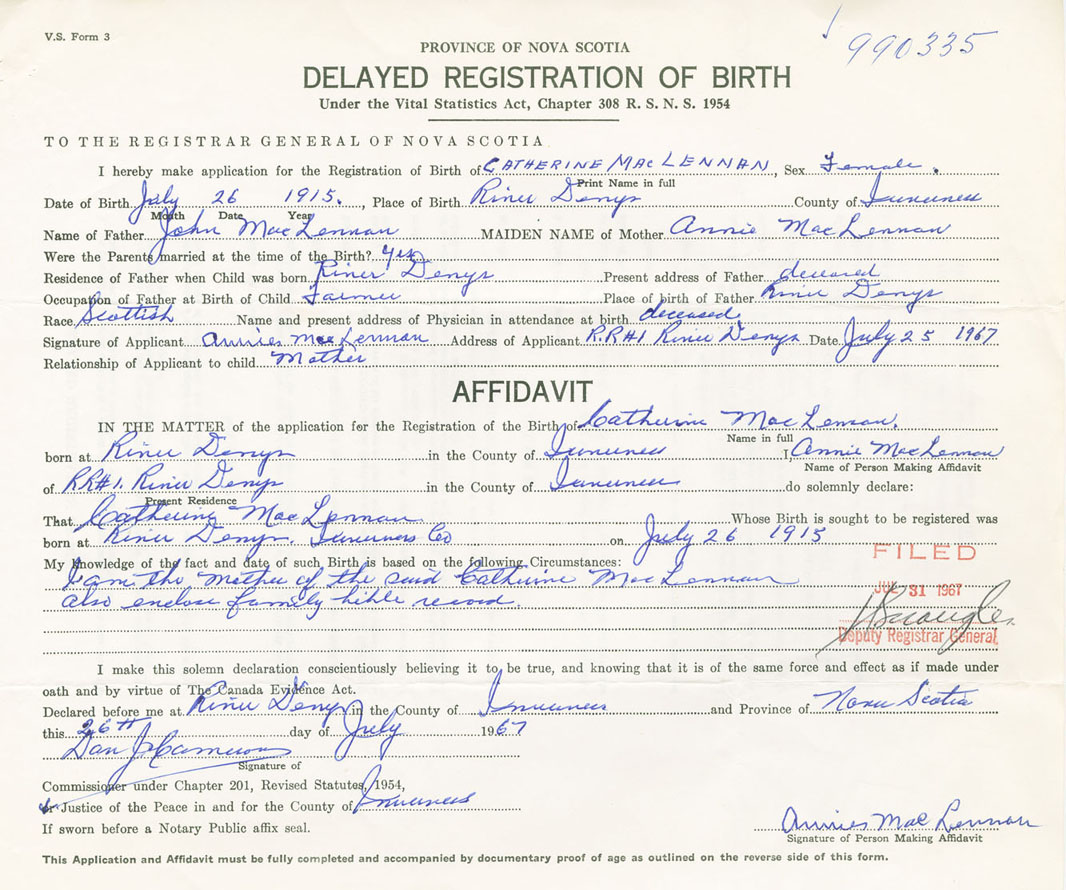 V.S. Form 3
990335
PROVINCE OF NOVA SCOTIA
DELAYED REGISTRATION OF BIRTH
Under the Vital Statistics Act, Chapter 308 R. S. N. S. 1954
TO THE REGISTRAR GENERAL OF NOVA SCOTIA
I hereby make application for the Registration of Birth of CATHERINE MACLENNAN, Sex Female.
Print Name in full
Date of Birth July 26 1915., Place of Birth River Denys County of Inverness
Month Date Year
Name of Father John MacLennan MAIDEN NAME of Mother Annie MacLennan
Were the Parents married at the time of the Birth? yes
Residence of Father when Child was born River Denys Present address of Father deceased
Occupation of Father at Birth of Child Farmer Place of birth of Father River Denys
Race Scottish Name and present address of Physician in attendance at birth deceased
Signature of Applicant Annies MacLennan Address of Applicant R.R#1 River Denys Date July 25 1967
Relationship of Applicant to child Mother
AFFIDAVIT
IN THE MATTER of the application for the Registration of the Birth of Catherine MacLennan.
Name in full
born at River Denys in the County of Inverness I, Annie MacLennan
Name of Person Making Affidavit
of RR#1. River Denys in the County of Inverness do solemnly declare:
Present Residence
That Catherine MacLennan Whose Birth is sought to be registered was
born at River Denys. Inverness Co on July 26 1915
My knowledge of the fact and date of such Birth is based on the following Circumstances:
I am the Mother of the said Catherine MacLennan
also enclose family bible record.
FILED
JUL 31 1967
Deputy Registrar General
I make this solemn declaration conscientiously believing it to be true, and knowing that it is of the same force and effect as if made under
oath and by virtue of The Canada Evidence Act.
Declared before me at River Denys in the County of Inverness and Province of Nova Scotia
this 26th day of July 1967
Dan J Cameron
Signature of
Commissioner under Chapter 201, Revised Statutes, 1954,
or Justice of the Peace in and for the County of Inverness
If sworn before a Notary Public affix seal.
Annies MacLennan
Signature of Person Making Affidavit
This Application and Affidavit must be fully completed and accompanied by documentary proof of age as outlined on the reverse side of this form.